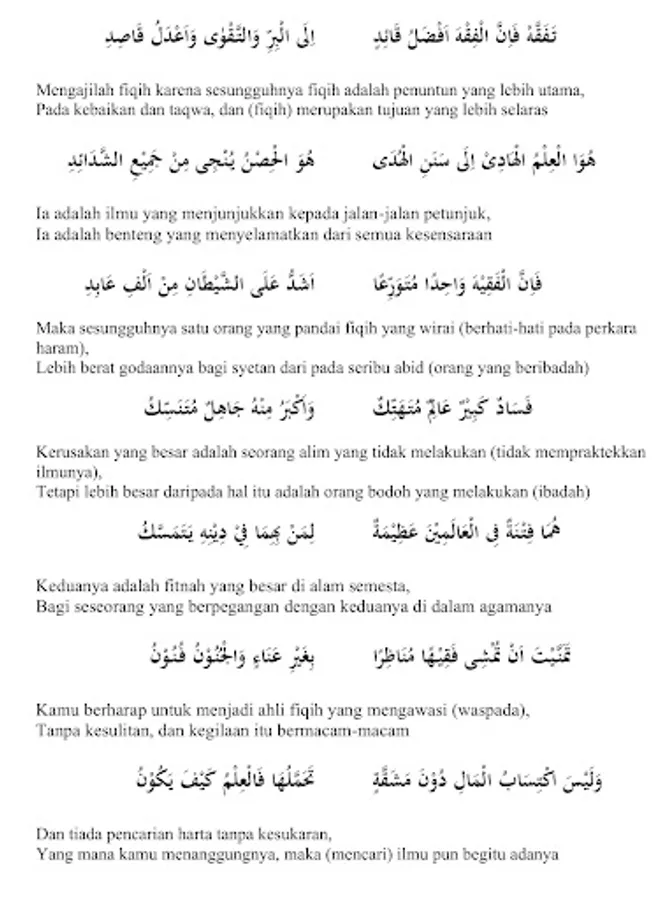 تَفَقَّهْ فَاِنَّ الْفِقْهَ اَفْضَلُ قَائِدٍ اِلَى الْبِرِّ وَالتَّقْوٰى وَاَعْدَلُ قَاصِدِ
Mengajilah fiqih karena sesungguhnya fiqih adalah penuntun yang lebih utama,
Pada kebaikan dan taqwa, dan (fiqih) merupakan tujuan yang lebih selaras
هُوَا الْعِلْمُ الْهَادِىْ اِلَى سَنَنِ الْهُدَى هُوَ الْحِصْنُ يُنْجِى مِنْ جَمِيْعِ الشَّدَائِدِ
Ia adalah ilmu yang menjunjukkan kepada jalan-jalan petunjuk,
Ia adalah benteng yang menyelamatkan dari semua kesensaraan
فَاِنَّ الْفَقِيْهَ وَاحِدًا مُتَوَرِّعًا اَشَدُّ عَلَى الشَّيْطَانِ مِنْ اَلْفِ عَابِدِ
Maka sesungguhnya satu orang yang pandai fiqih yang wirai (berhati-hati pada perkara
haram),
Lebih berat godaannya bagi syetan dari pada seribu abid (orang yang beribadah)
فَسَادٌ كَبِيْرٌ عَالِمٌ مُتَهَتِّكٌ وَاَكْبَرُ مِنْهُ جَاهِلٌ مُتَنَسِّكُ
Kerusakan yang besar adalah seorang alim yang tidak melakukan (tidak mempraktekkan
ilmunya),
Tetapi lebih besar daripada hal itu adalah orang bodoh yang melakukan (ibadah)
هُمَا فِتْنَةٌ فِى الْعَالَمِيْنَ عَظِيْمَةٌ لِمَنْ بِهِمَا فِيْ دِيْنِهِ يَتَمَسَّكُ
Keduanya adalah fitnah yang besar di alam semesta,
Bagi seseorang yang berpegangan dengan keduanya di dalam agamanya
تَمَنَّيْتَ اَنْ تُمْشِى فَقِيْهًا مُنَاظِرًا بِغَيْرِ عَنَاءٍ وَالْجُنُوْنُ فُنُوْنُ
Kamu berharap untuk menjadi ahli fiqih yang mengawasi (waspada),
Tanpa kesulitan, dan kegilaan itu bermacam-macam
وَلَيْسَ اكْتِسَابُ الْمَالِ دُوْنَ مَشَقَّةٍ تَحَمَّلُهَا فَالْعِلْمُ كَيْفَ يَكُوْنُ
Dan tiada pencarian harta tanpa kesukaran,
Yang mana kamu menanggungnya, maka (mencari) ilmu pun begitu adanya